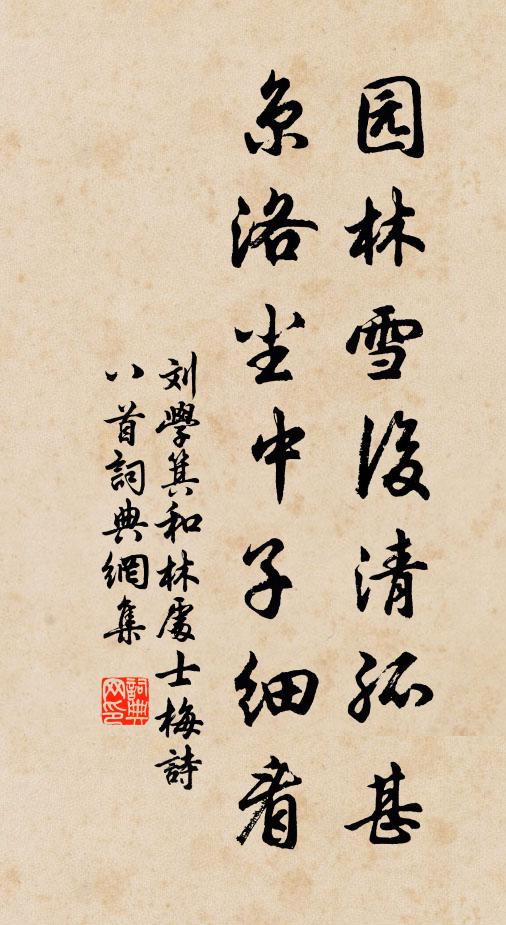 园林雪後清孤甚
京洛尘中子细看
刘學箕和林處士梅詩
八首詞典網集
詞典网印